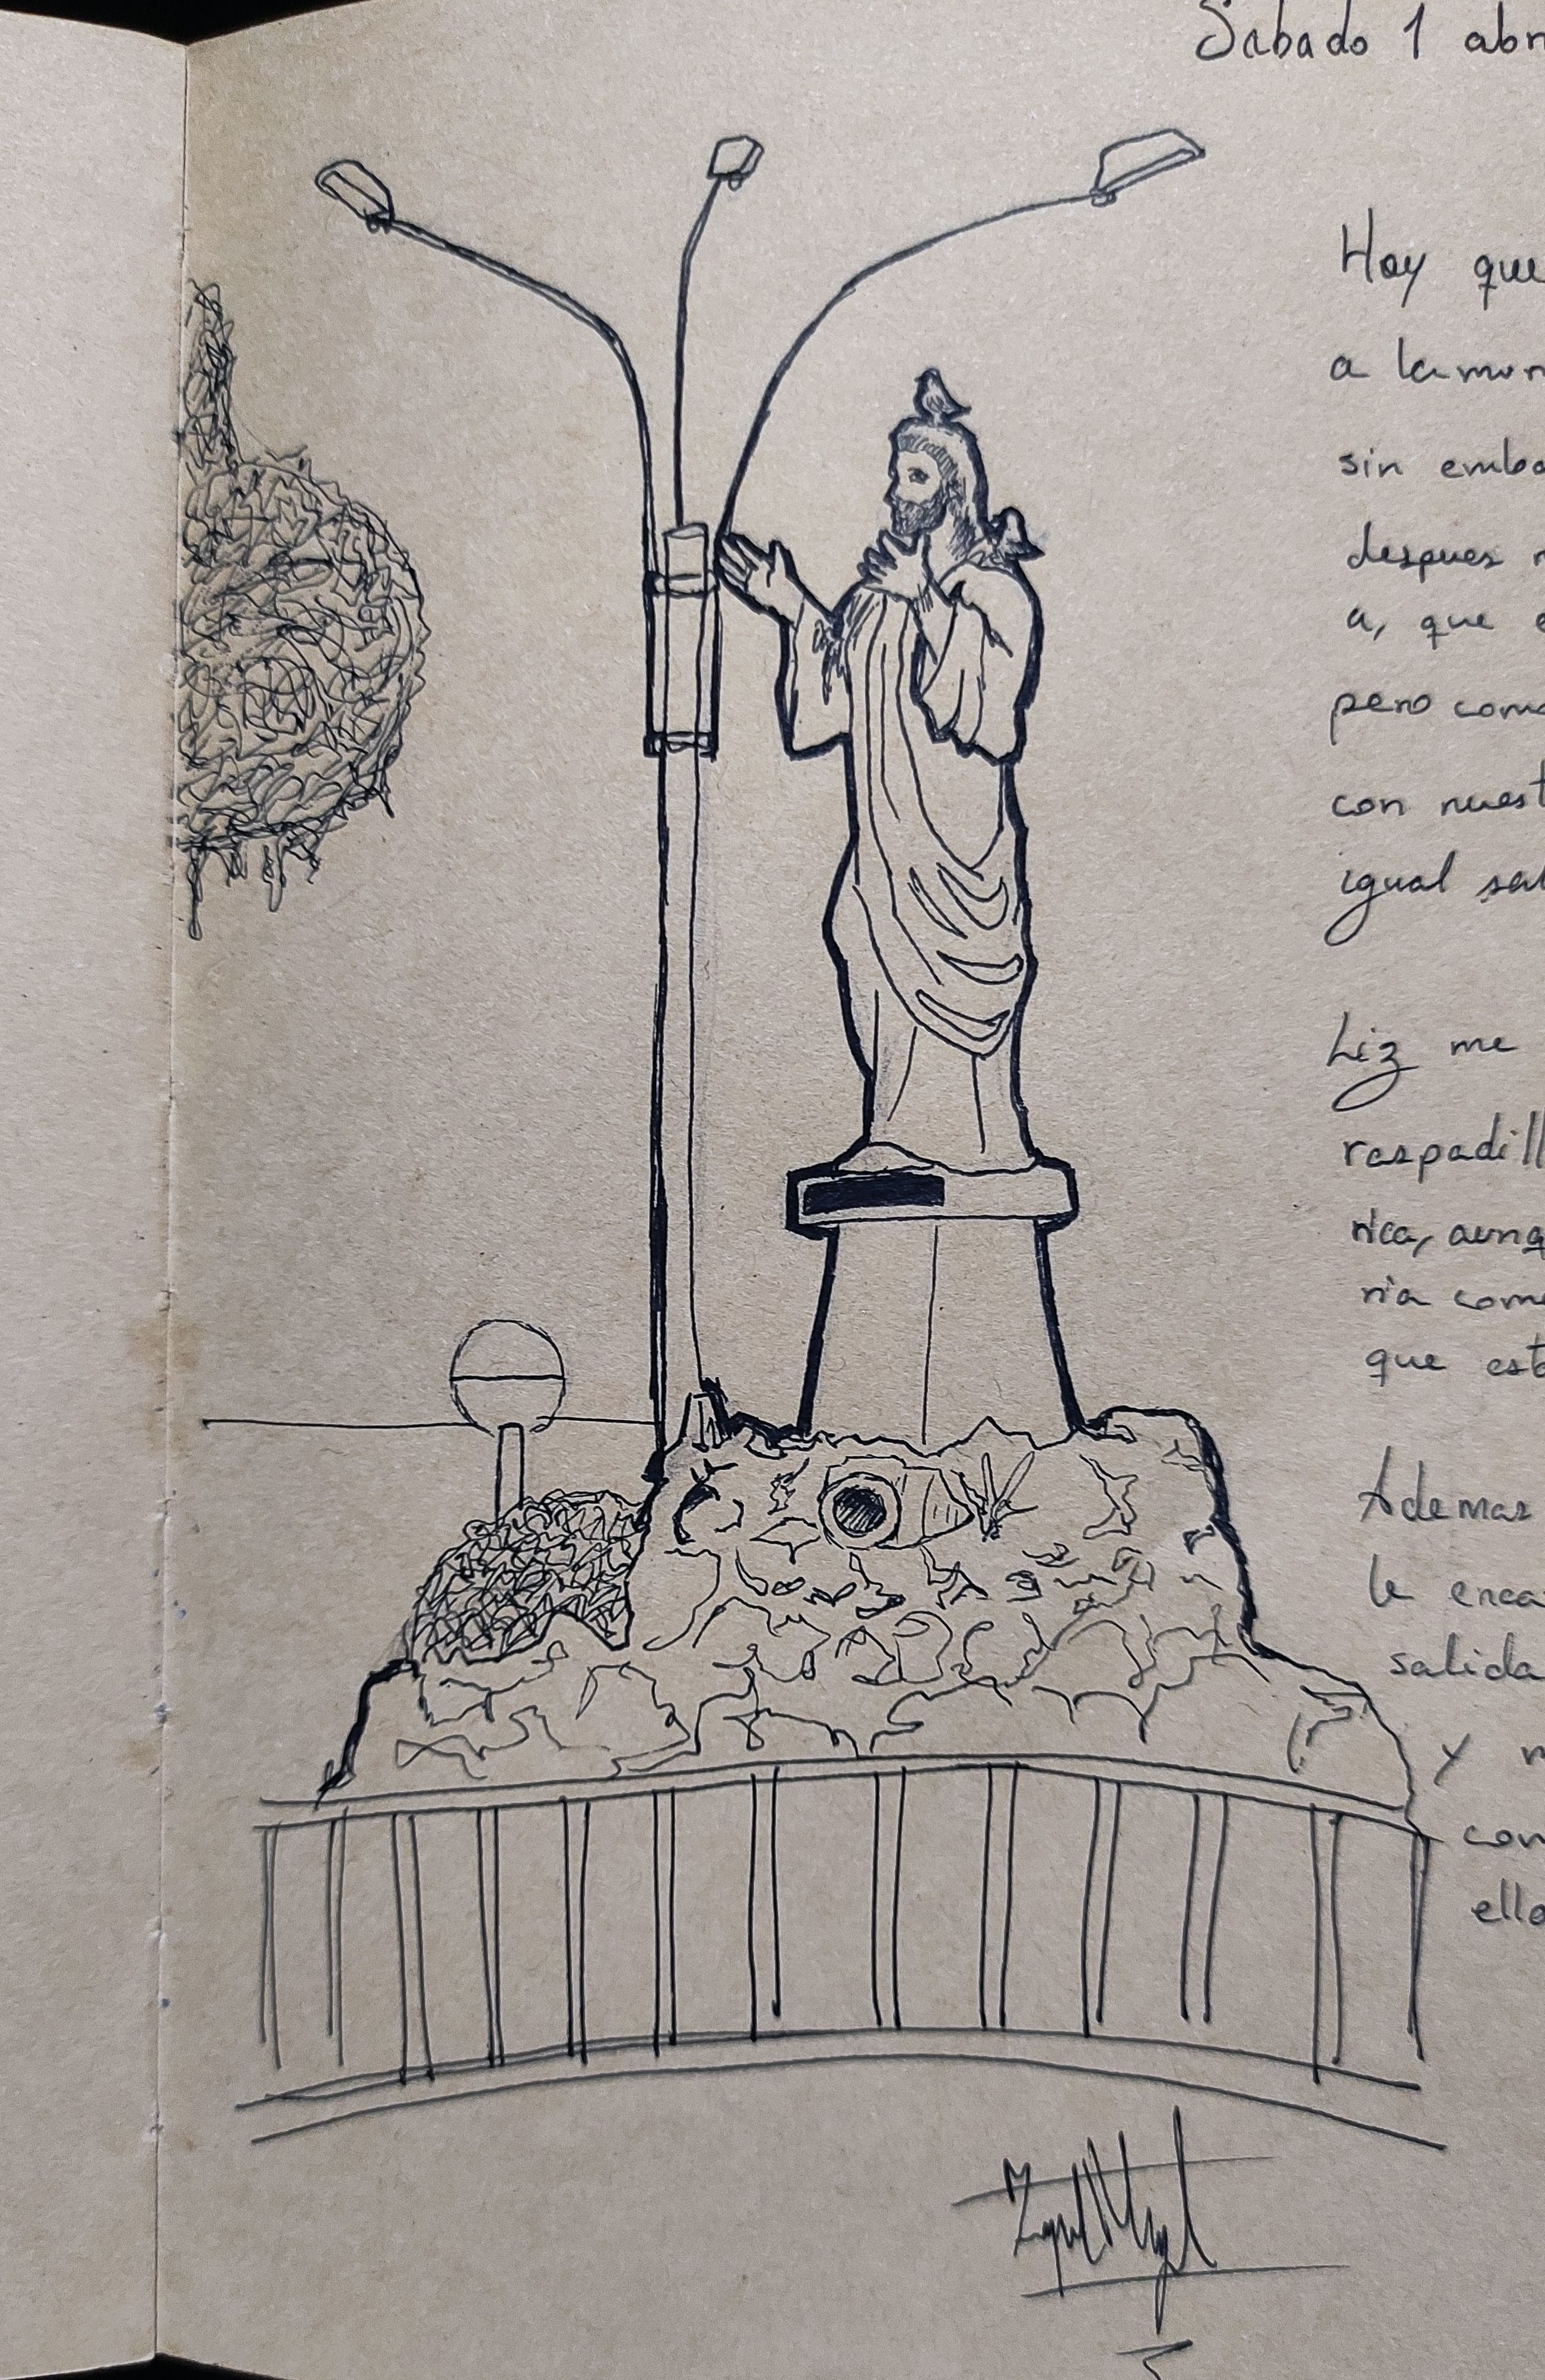 Sabado 1 abr
Hoy que
a la mon
sin emba
despues
a, que e
pero como
con nuest
igual sal
Liz me
raspadill
rica, aunq
ria come
que est
Ademas
le enca
salida
y
con
ella